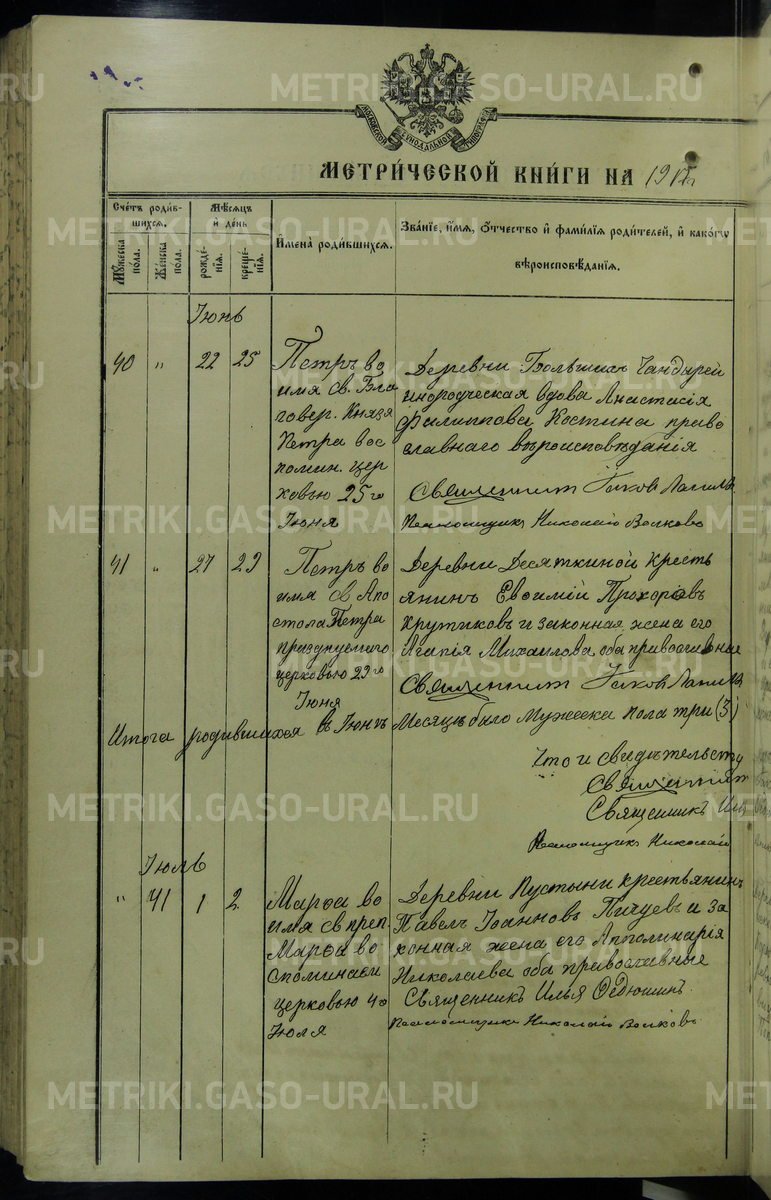 МОСКОВСКОЙ СѴНОДАЛЬНОЙ ТИПОГРАФІИ
МЕТРИ́ЧЕСКОЙ КНИ́ГИ НА 19
Сче́тъ роди́в-
шихся.
Мѣ́сяцъ
и҆ де́нь
И҆мена̀ роди́вшихся.
Зва́нїе, и҆́мя, ѻ҆́тчество и҆ фами́лїя роди́телей, и҆ како́гѡ
вѣроисповѣ́данїя.
Мꙋ́жеска по́ла.
Же́нска по́ла.
рожде́нїя.
креще́нїя.
Іюнь
40 " 22 25 Петръ во
имя св. Бла
говер. Князя
Петра вос
помин. цер
ковью 25го
Іюня
Деревни Большихъ Чандырей
инородческая вдова Анастасія
Филиппова Костина право
славнаго вѣроисповѣданія
Священникъ Іаковъ
Псаломщикъ Николай Волковъ
41 " 27 29 Петръ во
имя св Апо
стола Петра
празднуемаго
церковью 29го
Іюня
Деревни Десяткиной кресть
янинъ Евѳимій Прохоровъ
Крутиковъ и законная жена его
Агапія Михаилова оба православные
Священникъ Іаковъ
Итого родившихся въ Іюнѣ Месяцѣ было Мужеска пола три (3)
Что и свидѣтельству
Священник
Священникъ Иль
Псаломщикъ Николай
Іюль
" 41 1 2 Марѳа во
имя св преп.
Марѳа во
споминаем
церковью 4го
Іюля
Деревни Пустыни крестьянинъ
Павелъ Іоанновъ Пичуевъ и за
конная жена его Апполинарія
Николаева оба православные
Священникъ Илья Федюшинъ
Псаломщикъ Николай Волковъ
METRIKI.GASO-URAL.RU